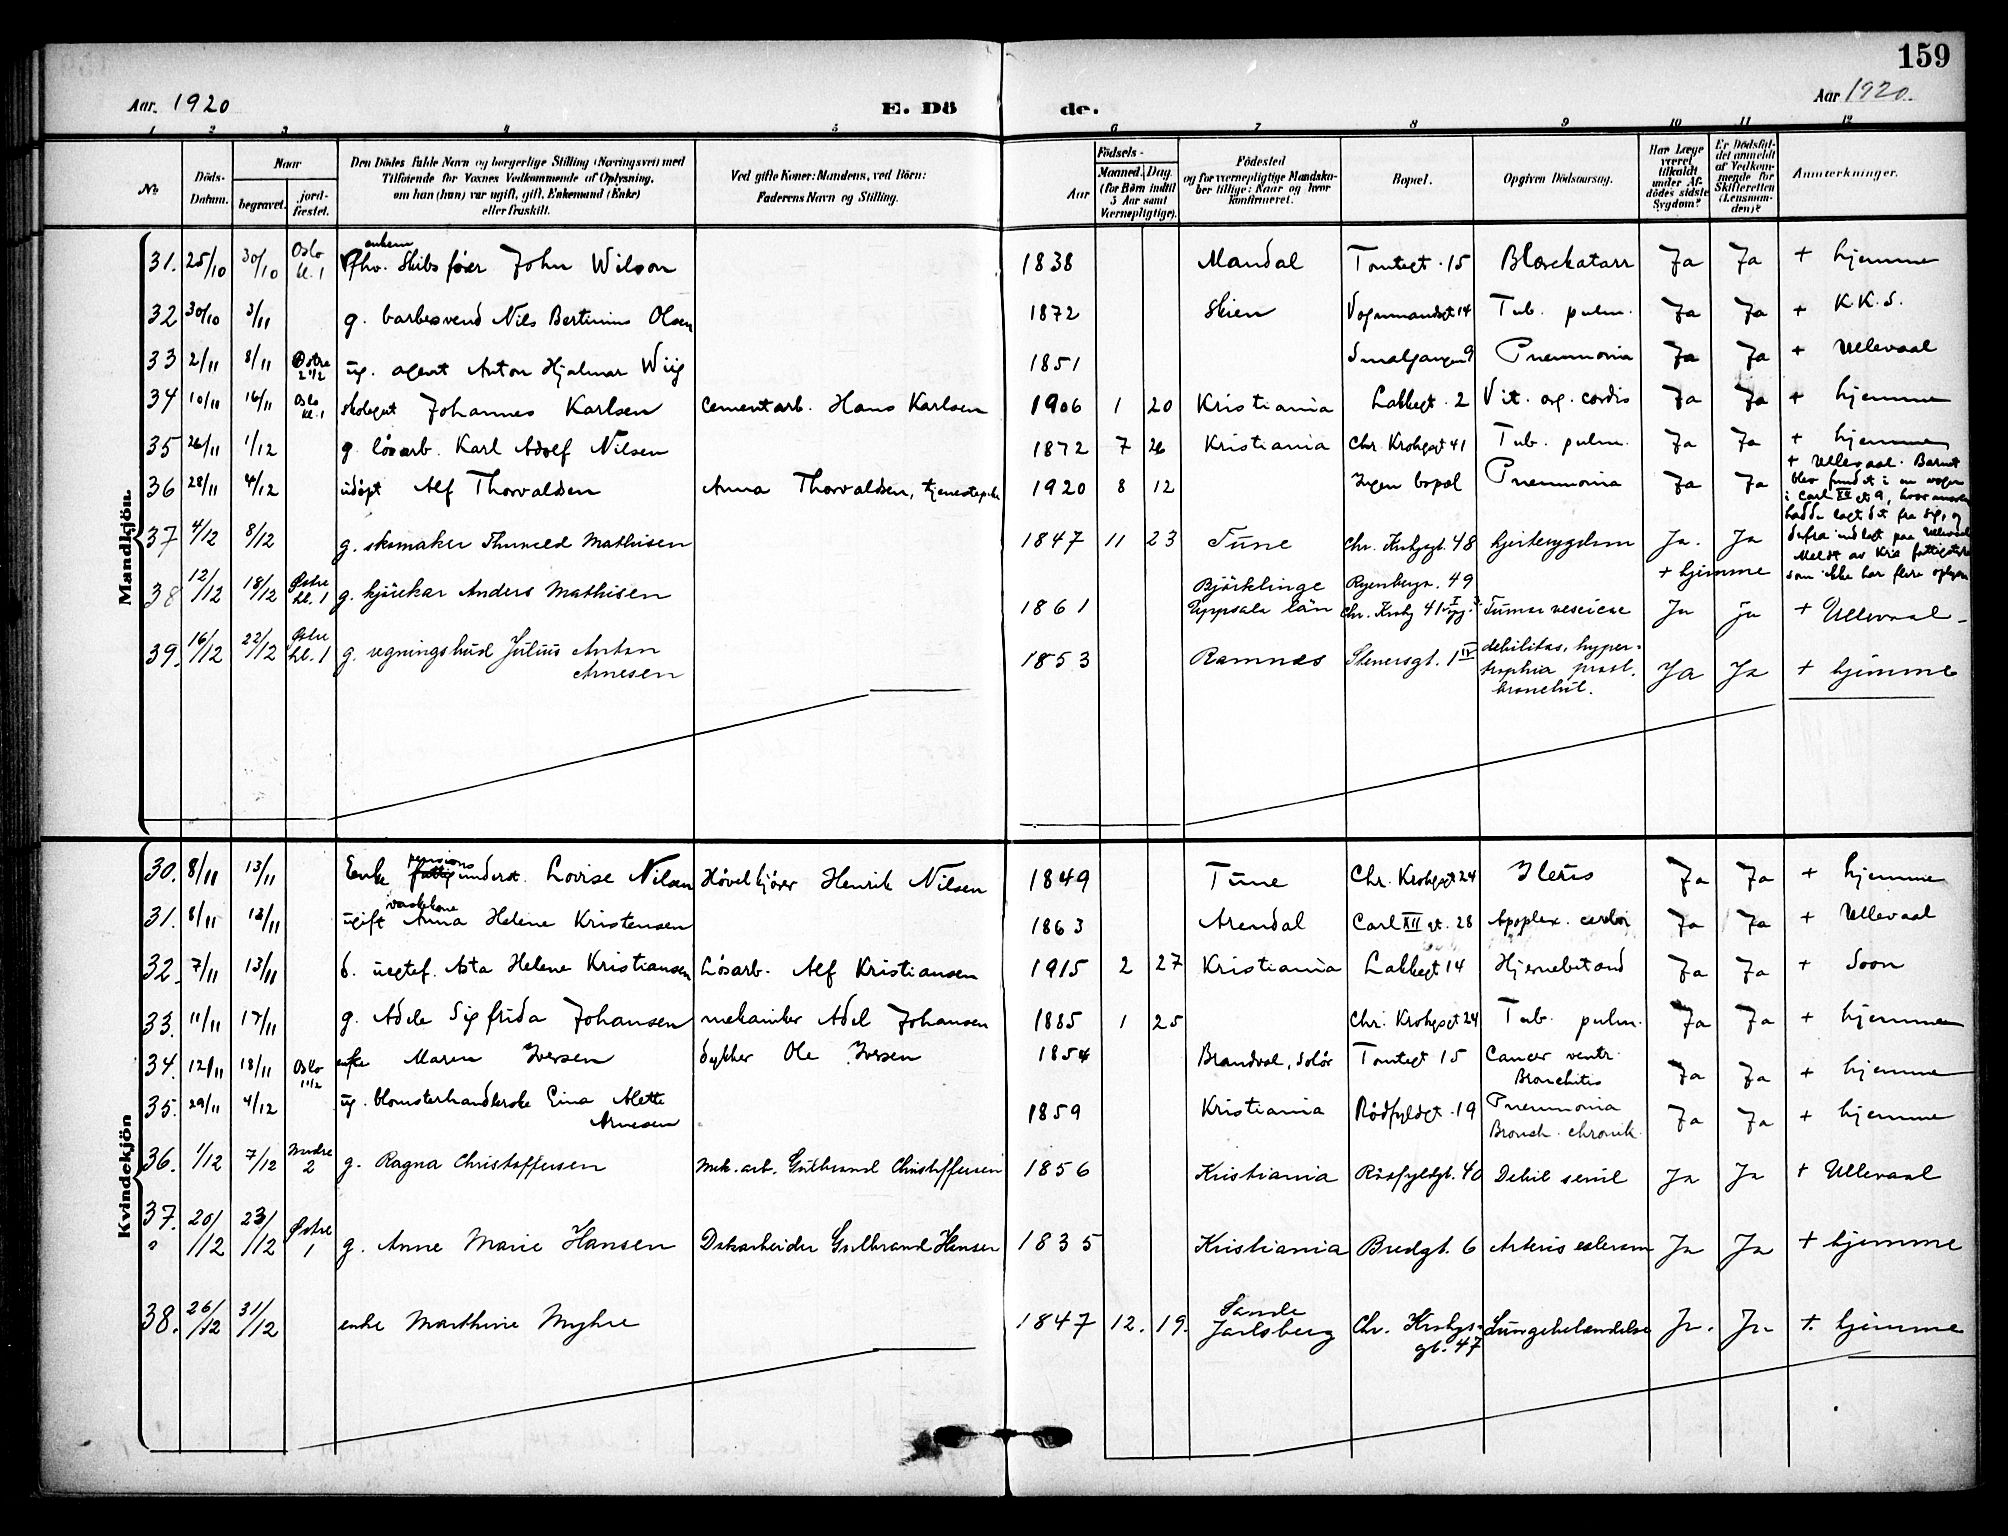 159
Aar. 1920
E. Dö de.
Aar 1920.
1 2 3 4 5 6 7 8 9 10 11 12
No
Döds-
Datum.
Naar
begravet.
jord-
fæstet.
Den Dödes fulde Navn og borgerlige Stilling (Næringsvei) med
Tilföiende for Voxnes Vedkommende af Oplysning,
om han (hun) var ugift, gift, Enkemand (Enke)
eller fraskilt.
Ved gifte Koner: Mandens, ved Börn:
Faderens Navn og Stilling.
Födsels-
Aar
Maaned. Dag.
(for Börn indtil
5 Aar samt
Værnepligtige).
Födested
og for værnepligtige Mandska-
ber tillige: Naar og hvor
konfirmeret.
Bopæl.
Opgiven Dödsaarsag.
Har Læge
været
tilkaldt
under Af-
dödes sidste
Sygdom?
Er Dödsfal-
det anmeldt
af Vedkom-
mende for
Skifteretten
(Lensman-
den)?
Anmærkninger.
Mandkjön
31. 25/10 30/10 Oslo kl. 1 enkem fhv. Skibsfører John Wilson 1838 Mandal Tomtegt. 15 Blærekatarr Ja Ja + hjemme
32 30/10 3/11 g. barbersvend Nils Bertinius Olsen 1872 Skien Vognmandsgt 14 Tub. pulm. Ja Ja + K.K.S.
33 2/11 8/11 Østre 2 1/2 ug. agent Anton Hjalmar Wiig 1851 Smalgangen 9 Pneumonia Ja Ja + Ullevaal
34 10/11 16/11 Oslo kl. 1 skolegut Johannes Karlsen cementarb. Hans Karlsen 1906 1 20 Kristiania Lakkegt. 2 Vit. org. cordis Ja Ja + hjemme
35 26/11 1/12 g. løsarb. Karl Adolf Nilsen 1872 7 26 Kristiania Chr. Krohgsgt 41 Tub. pulm. Ja Ja + hjemme
36 28/11 4/12 udøpt Alf Thorvaldsen Anna Thorvaldsen, tjenestepike 1920 8 12 Ingen bopæl Pneumonia Ja Ja + Ullevaal. Barnet
blev fundet i en vogn
i Carl XII gt. 9, hvor moren
hadde lagt det fra sig, og
derfra indlagt paa Ullevaal
Meldt av Kra fattigstyre
som ikke har flere oplysn.
37 4/12 8/12 g. skomaker Thorvald Mathisen 1847 11 23 Tune Chr. Krohgsgt. 48 hjertesygdom Ja. Ja + hjemme
38 12/12 18/12 Østre kl. 1 g. kjørekar Anders Mathisen 1861 Björklinge
Uppsala län Ryenbergv. 49
Chr. Krohg 41 Tumor vesicae Ja ja + Ullevaal
39. 16/12 22/12 Østre kl. 1 g. regningsbud Julius Anton
Arnesen 1853 Ramnes Stenersgt. 1 IV debilitas, hyper-
trophia prost.
bronchit. Ja Ja + hjemme
Kvindekjön
30. 8/11 13/11 Enke pensions underst. Lovise Nilsen Høvelkjører Henrik Nilsen 1849 Tune Chr. Krohgsgt 24 Ileus Ja Ja + hjemme
31. 8/11 13/11 ugift vaskekone Anna Helene Kristensen 1863 Arendal Carl XII gt. 28 Apoplex. cerebri Ja Ja + Ullevaal
32. 7/11 13/11 d. uegtef. Asta Helene Kristiansen Løsarb. Alf Kristiansen 1915 2 27 Kristiania Lakkegt 14 Hjernebetænd Ja Ja + Soon
33. 11/11 17/11 g. Adele Sigfrida Johansen mekaniker Adel Johansen 1885 1 25 Chr. Krohgsgt 24 Tub. pulm. Ja Ja + hjemme
34. 12/11 18/11 Oslo 1 1/2 enke Maren Iversen dykker Ole Iversen 1854 Brandval, Solør Tomtegt 15 Cancer ventr.
Bronchitis Ja Ja + hjemme
35. 29/11 4/12 ug. blomsterhandlerske Eina Alette
Arnesen 1859 Kristiania Rødfyldgt. 19 Pneumonia
Bronch. chronik. Ja Ja + hjemme
36. 1/12 7/12 Nordre 2 g. Ragna Christoffersen Mek. arb. Gulbrand Christoffersen 1856 Kristiania Rödfyldgt. 40 Debil senil Ja Ja + Ullevaal
37. 20/12 23/12 Østre 1 g. Anne Marie Hansen Dokarbeider Gulbrand Hansen 1835 Kristiania Bredgt. 6 Arterio scleros Ja Ja + hjemme
38. 26/12 31/12 enke Marthine Myhre 1847 12. 19. Sande
Jarlsberg Chr. Krohgs-
gt. 47 Lungebetændelse Ja. Ja + hjemme